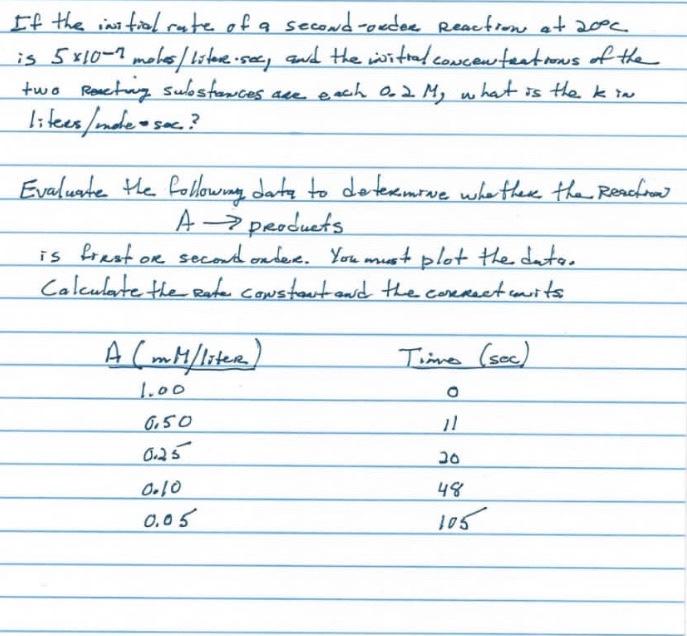 If the initial rate of a second-order Reaction at 20°C
is 5x10-7 moles/liter·sec, and the initial concentrations of the
two Reacting substances are each 0.2 M, what is the k in
liters/mole·sec?
Evaluate the following data to determine whether the Reaction
A → products
is first or second order. You must plot the data.
Calculate the rate constant and the correct units
A (mM/liter) Time (sec)
1.00 0
0.50 11
0.25 20
0.10 48
0.05 105